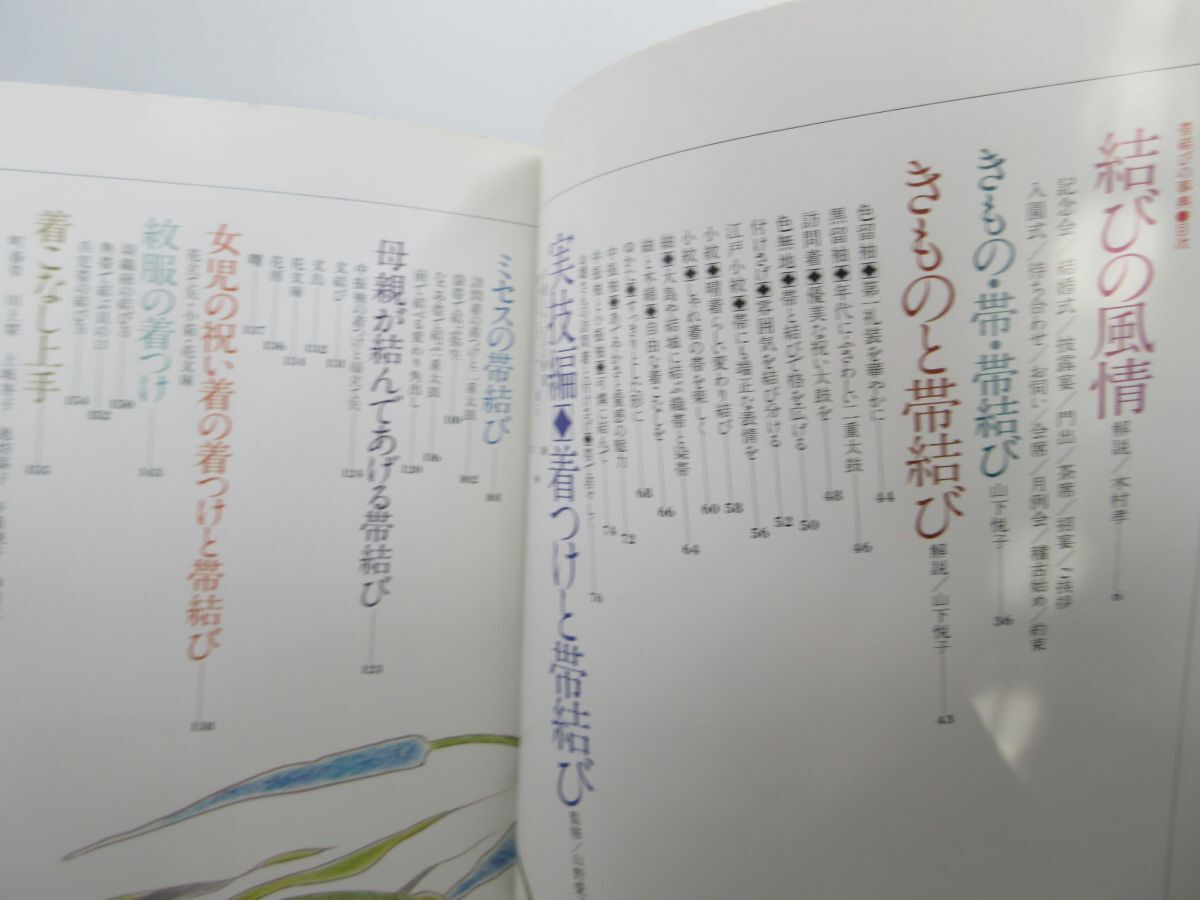 帯結びの事典●目次
結びの風情 解説／木村孝 6
記念会／結婚式／披露宴／門出／茶席／招宴／ご挨拶
入園式／待ち合わせ／お伺い／会席／月例会／稽古始め／約束
きもの・帯・帯結び 山下悦子 36
きものと帯結び 解説／山下悦子 43
色留袖◆第一礼装を華やかに 44
黒留袖◆年代にふさわしい二重太鼓 46
訪問着◆優美な祝い太鼓を 48
色無地◆帯と結びで格を広げる 50
付けさげ◆雰囲気を結び分ける 52
江戸小紋◆帯にも端正な表情を 56
小紋◆晴着らしい変わり結び 58
小紋◆しゃれ着の帯を楽しく 60
紬◆大島や結城に結ぶ織帯と染帯 64
紬と木綿◆自由な着こなしを 66
ゆかた◆すっきりと小粋に 68
中振袖◆ 72
中振袖と小振袖◆可憐に結んで 74
76
実技編◆着つけと帯結び 監修／山野愛
ミセスの帯結び 101
訪問着の着つけと二重太鼓 102
なごや帯で結ぶ一重太鼓
116
120
母親が結んであげる帯結び 123
中振袖の着つけと 124
文結び 131
文庫 132
花文庫 134
136
137
女児の祝い着の着つけと帯結び 138
紋服の着つけ 145
150
角帯で結ぶ貝の口 152
兵児帯の結び方 154
着こなし上手 155